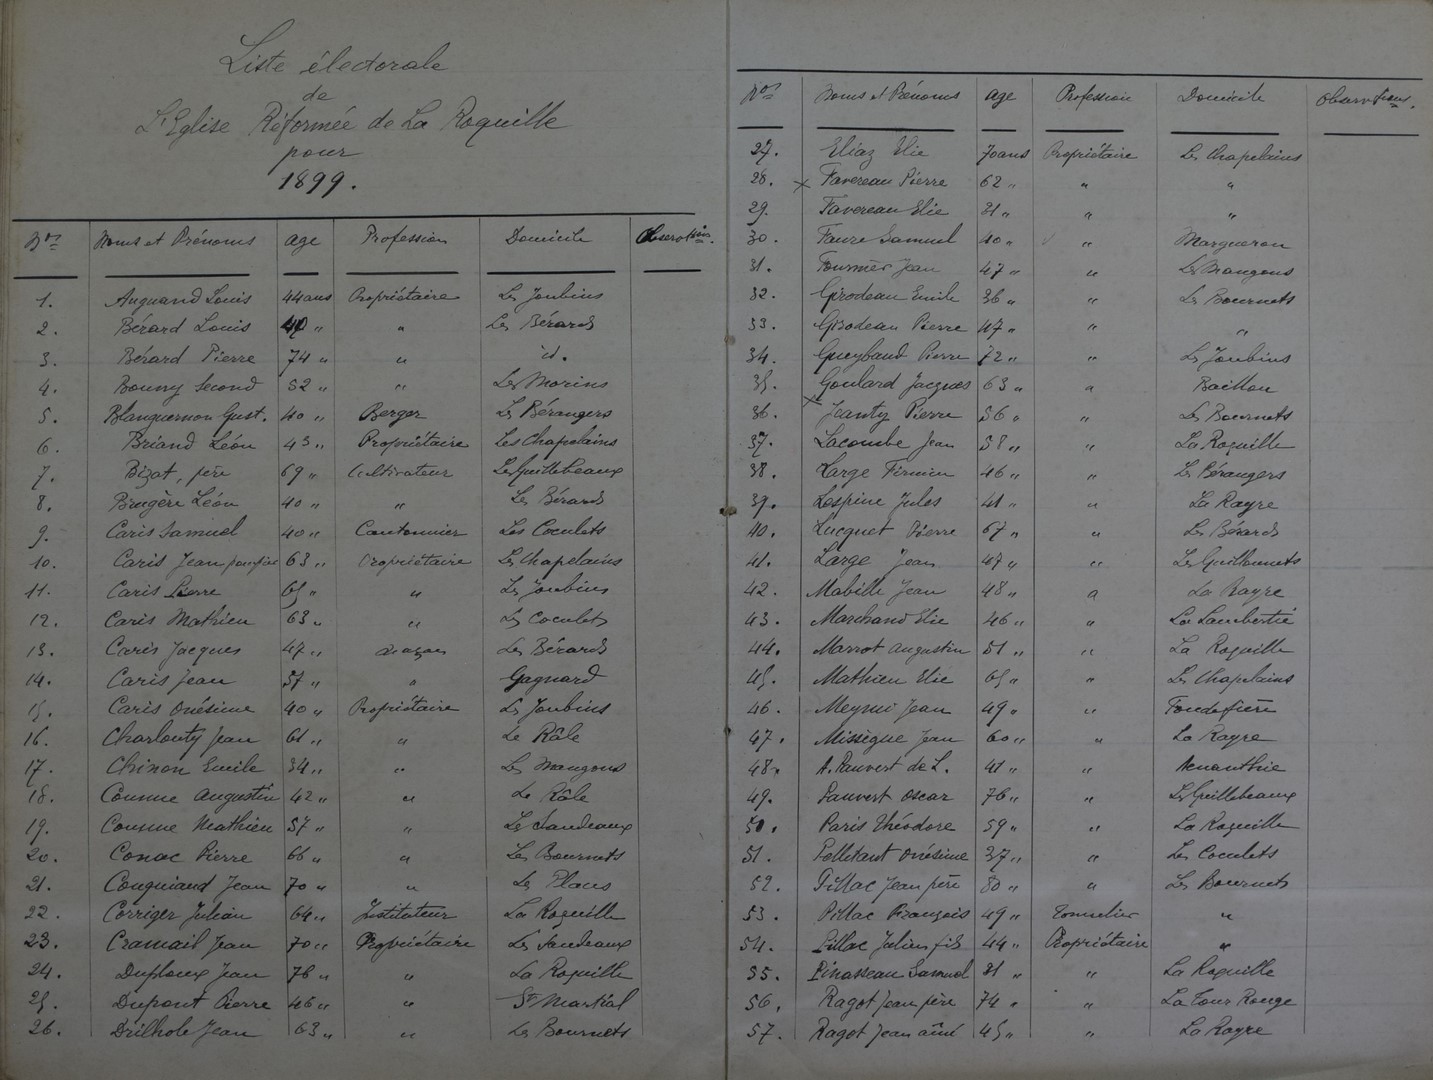 Liste électorale
de
L'Eglise Réformée de La Roquille
pour
1899.
Nos Noms et Prénoms age Profession Domicile Observation.
1. Auguand Louis 44 ans Propriétaire Les Joubins
2. Bérard Louis 40 " " Les Bérards
3. Bérard Pierre 74 " " id.
4. Bouny Second 52 " " Les Morins
5. Blanguernon Gust. 40 " Berger Les Bérangers
6. Briand Léon 43 " Propriétaire Les Chapelains
7. Bizat, père 69 " Cultivateur Les Guillebeaux
8. Brugère Léon 40 " " Les Bérards
9. Caris Samuel 40 " Cantonnier Les Coculets
10. Caris Jean 63 " Propriétaire Les Chapelains
11. Caris Pierre 65 " " Les Joubins
12. Caris Mathieu 63 " " Les Coculets
13. Caris Jacques 47 " Les Bérards
14. Caris Jean 57 " " Gagnard
15. Caris Onésime 40 " Propriétaire Les Joubins
16. Charlouty Jean 61 " " Le Râle
17. Chinon Emile 34 " " Les Mangons
18. Coumme Augustin 42 " " Le Râle
19. Coumme Mathieu 57 " " Les Jandeaux
20. Conac Pierre 66 " " Les Bournets
21. Jean 70 " " Les Places
22. Corriger Julien 64 " Instituteur La Roquille
23. Cramail Jean 70 " Propriétaire Les Jandeaux
24. Duploux Jean 76 " " La Roquille
25. Dupont Pierre 46 " " St Martial
26. Drilhole Jean 63 " " Les Bournets
Nos Noms et Prénoms age Profession Domicile Observations.
27. Eliaz Elie 70 ans Propriétaire Les Chapelains
28. x Favereau Pierre 62 " " "
29. Favereau Elie 31 " " "
30. Faure Samuel 40 " " Margueron
31. Fournier Jean 47 " " Les Mangons
32. Girodeau Emile 36 " " Les Bournets
33. Girodeau Pierre 47 " " "
34. Gueybaud Pierre 72 " " Les Joubins
35. Goulard Jacques 63 " " Baillou
36. x Jeanty Pierre 56 " " Les Bournets
37. Lacombe Jean 58 " " La Roquille
38. Large Firmin 46 " " Les Bérangers
39. Lespine Jules 41 " " La Rayre
40. Lucquet Pierre 67 " " Les Bérards
41. Large Jean 47 " " Les Guillonnets
42. Mabille Jean 48 " " La Rayre
43. Marchand Elie 46 " " La Lambertie
44. Marrot Augustin 51 " " La Roquille
45. Mathieu Elie 65 " " Les Chapelains
46. Jean 49 " "
47. Missègue Jean 60 " " La Rayre
48. A. Pauvert de L. 41 " "
49. Pauvert Oscar 76 " " Les Guillebeaux
50. Paris Théodore 59 " " La Roquille
51. Pellitant Onésime 37 " " Les Coculets
52. Pillac Jean père 80 " " Les Bournets
53. Pillac François 49 " Tonnelier "
54. Pillac Julien fils 44 " Propriétaire "
55. Pinasseau Samuel 31 " " La Roquille
56. Ragot Jean père 74 " " La Tour Rouge
57. Ragot Jean aîné 45 " " La Rayre